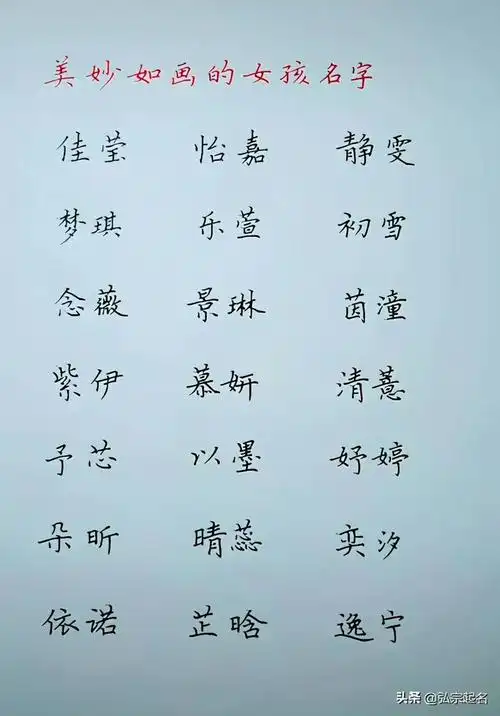 美妙如画的女孩名字
佳莹 怡嘉 静雯
梦琪 乐萱 初雪
念薇 景琳 茵潼
紫伊 慕妍 清薏
予芯 以墨 妤婷
朵昕 晴蕊 奕汐
依诺 芷晗 逸宁
头条 @弘宗起名